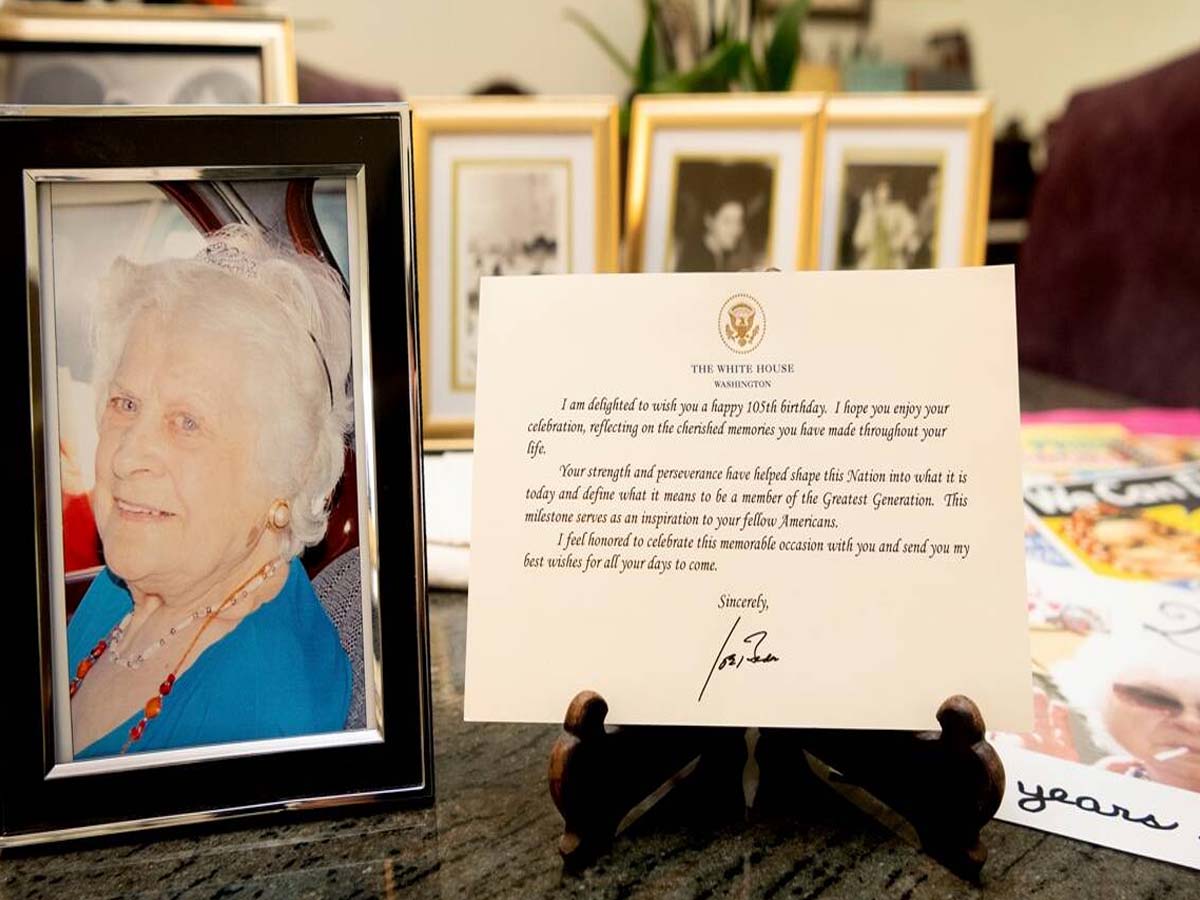 THE WHITE HOUSE
WASHINGTON
I am delighted to wish you a happy 105th birthday. I hope you enjoy your
celebration, reflecting on the cherished memories you have made throughout your
life.
Your strength and perseverance have helped shape this Nation into what it is
today and define what it means to be a member of the Greatest Generation. This
milestone serves as an inspiration to your fellow Americans.
I feel honored to celebrate this memorable occasion with you and send you my
best wishes for all your days to come.
Sincerely,
Joe Biden
We Can
years